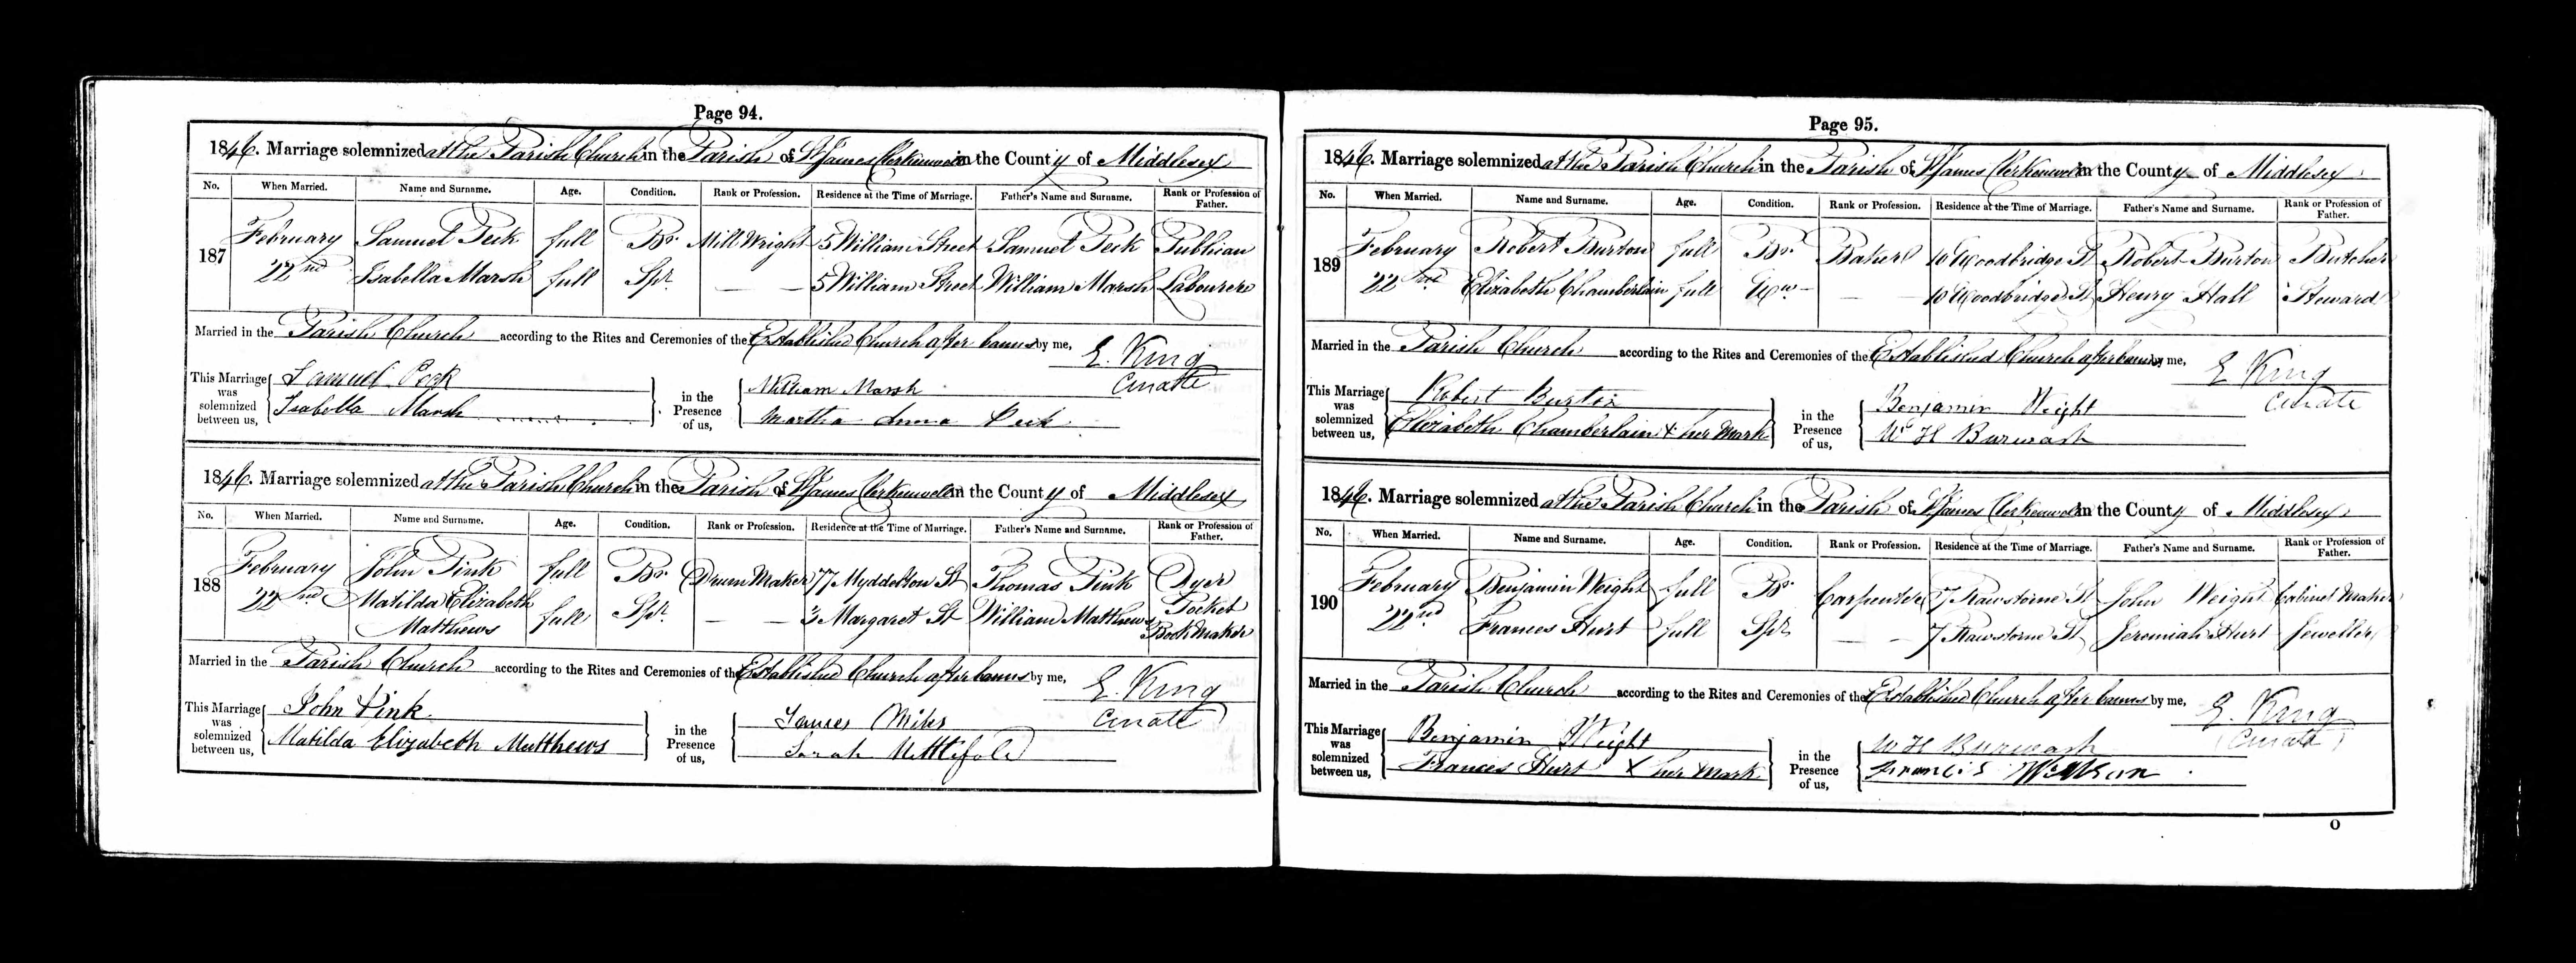 Page 94.
1846. Marriage solemnized at the Parish Church in the Parish of St James Clerkenwell in the County of Middlesex
No. When Married. Name and Surname. Age. Condition. Rank or Profession. Residence at the Time of Marriage. Father's Name and Surname. Rank or Profession of Father.
187 February Samuel Peck full Br. Mill Wright 5 William Street Samuel Peck Publican
22nd Isabella Marsh full Spr. — — 5 William Street William Marsh Labourer
Married in the Parish Church according to the Rites and Ceremonies of the Established Church after banns by me,
E. King
Curate
This Marriage was solemnized between us, Samuel Peck
Isabella Marsh
in the Presence of us, William Marsh
Martha Anna Peck
1846. Marriage solemnized at the Parish Church in the Parish of St James Clerkenwell in the County of Middlesex
No. When Married. Name and Surname. Age. Condition. Rank or Profession. Residence at the Time of Marriage. Father's Name and Surname. Rank or Profession of Father.
188 February John Pink full Br. Drum Maker 77 Myddelton St Thomas Pink Dyer
22nd Matilda Elizabeth Matthews full Spr. — — Margaret St William Matthews Pocket Book Maker
Married in the Parish Church according to the Rites and Ceremonies of the Established Church after banns by me,
E. King
Curate
This Marriage was solemnized between us, John Pink
Matilda Elizabeth Matthews
in the Presence of us, James Miles
Sarah Nettlefold
Page 95.
1846. Marriage solemnized at the Parish Church in the Parish of St James Clerkenwell in the County of Middlesex
No. When Married. Name and Surname. Age. Condition. Rank or Profession. Residence at the Time of Marriage. Father's Name and Surname. Rank or Profession of Father.
189 February Robert Burton full Br. Baker 10 Woodbridge St Robert Burton Butcher
22nd Elizabeth Chamberlain full Ww — — 10 Woodbridge St Henry Hall Steward
Married in the Parish Church according to the Rites and Ceremonies of the Established Church after banns by me,
E King
Curate
This Marriage was solemnized between us, Robert Burton
Elizabeth Chamberlain X her Mark
in the Presence of us, Benjamin Weight
W H Burwash
1846. Marriage solemnized at the Parish Church in the Parish of St James Clerkenwell in the County of Middlesex
No. When Married. Name and Surname. Age. Condition. Rank or Profession. Residence at the Time of Marriage. Father's Name and Surname. Rank or Profession of Father.
190 February Benjamin Weight full Br. Carpenter 7 Rawstorne St John Weight Cabinet Maker
22nd Frances Hurt full Spr. — — 7 Rawstorne St Jeremiah Hurt Jeweller
Married in the Parish Church according to the Rites and Ceremonies of the Established Church after banns by me,
E. King
Curate
This Marriage was solemnized between us, Benjamin Weight
Frances Hurt X her Mark
in the Presence of us, W H Burwash
Francis
O